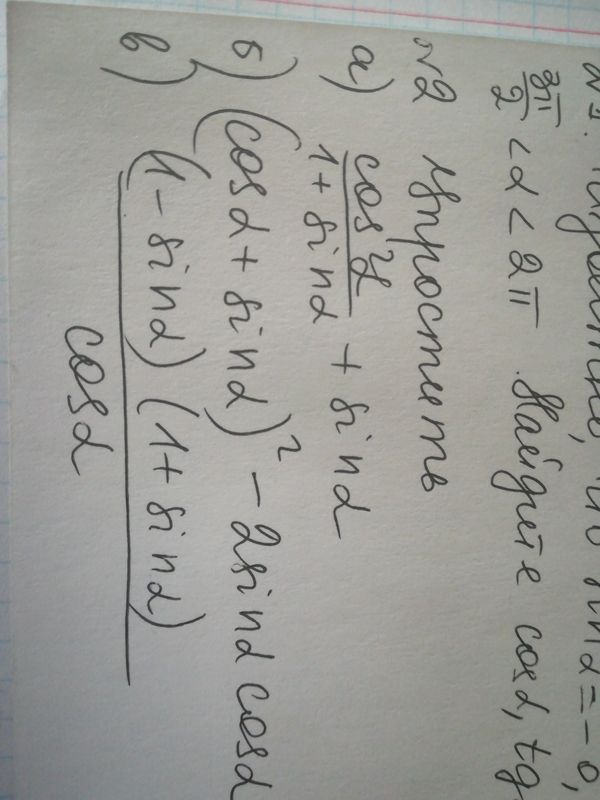 №1. Известно, что sin α = -0,
3π/2 < α < 2π. Найдите cos α, tg
№2 Упростить
а) cos²α / (1 + sin α) + sin α
б) (cos α + sin α)² - 2 sin α cos α
в) (1 - sin α) (1 + sin α) / cos α